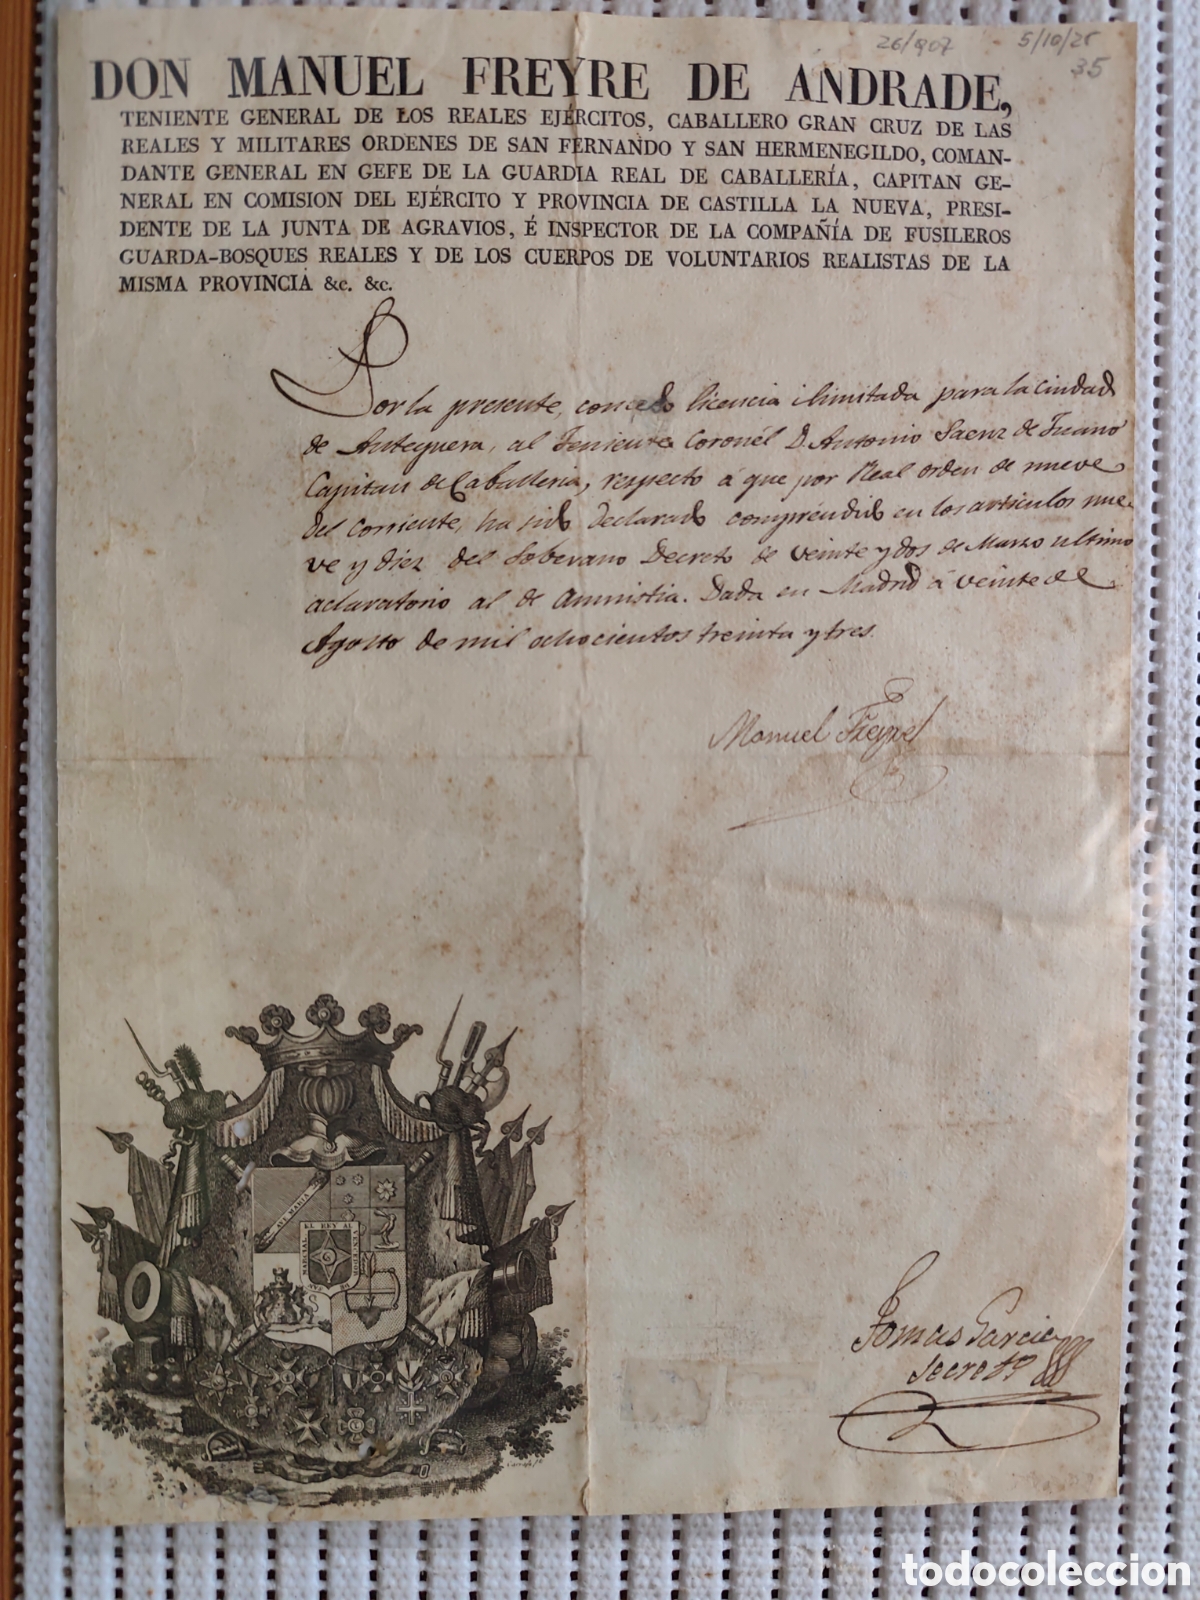 26/907 5/10/25
35
DON MANUEL FREYRE DE ANDRADE,
TENIENTE GENERAL DE LOS REALES EJÉRCITOS, CABALLERO GRAN CRUZ DE LAS
REALES Y MILITARES ORDENES DE SAN FERNANDO Y SAN HERMENEGILDO, COMAN-
DANTE GENERAL EN GEFE DE LA GUARDIA REAL DE CABALLERÍA, CAPITAN GE-
NERAL EN COMISION DEL EJÉRCITO Y PROVINCIA DE CASTILLA LA NUEVA, PRESI-
DENTE DE LA JUNTA DE AGRAVIOS, É INSPECTOR DE LA COMPAÑÍA DE FUSILEROS
GUARDA-BOSQUES REALES Y DE LOS CUERPOS DE VOLUNTARIOS REALISTAS DE LA
MISMA PROVINCIA &c. &c.
Por la presente, concedo licencia ilimitada para la ciudad
de Antequera, al Teniente Coronél D. Antonio Saenz de
Capitan de Caballeria, respecto á que por Real orden de nueve
del corriente, ha sido declarado compréndido en los articulos nue-
ve y diez del Soberano Decreto de veinte y dos de Marzo ultimo
aclaratorio al de Amnistia. Dada en Madrid á veinte de
Agosto de mil ochocientos treinta y tres.
Manuel Freyre
AVE MARIA
EL REY AL
MARCIAL
S
Tomas Garcia
Secret.º
todocoleccion